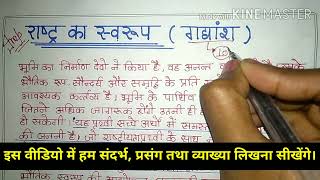 Made With
KINEMASTER
Imp
राष्ट्र का स्वरूप ( गद्यांश )
10
भूमि का निर्माण देवों ने किया है, वह अनन्त
भौतिक रूप, सौन्दर्य और समृद्धि के प्रति
आवश्यक कर्तव्य है। भूमि के पार्थिव
जितने अधिक जागरूक होंगे उतनी ही
हो सकेगी। यह पृथ्वी सच्चे अर्थों में समस्त
की जननी है, जो राष्ट्रीयता पृथ्वी के साथ
इस वीडियो में हम संदर्भ, प्रसंग तथा व्याख्या लिखना सीखेंगे।